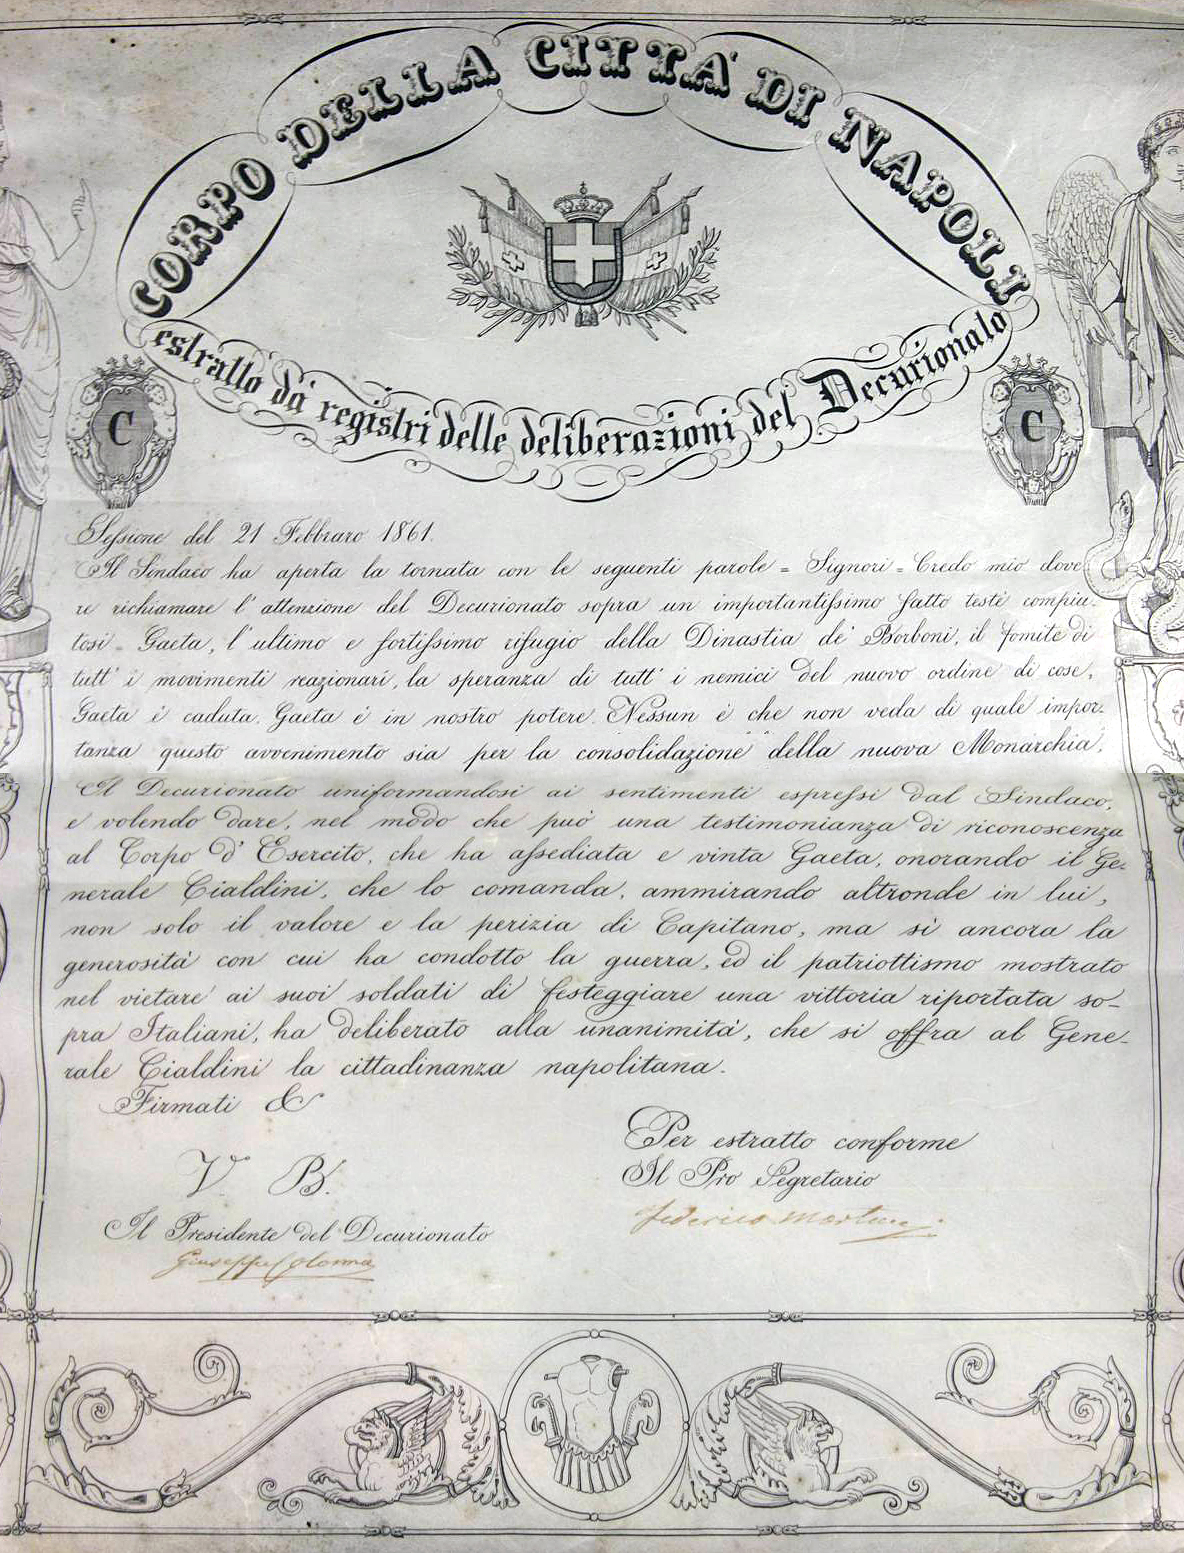 CORPO DELLA CITTÀ DI NAPOLI
estratto da' registri delle deliberazioni del Decurionato
C
C
Sessione del 21 Febbraro 1861.
Il Sindaco ha aperta la tornata con le seguenti parole = Signori = Credo mio dove
re richiamare l'attenzione del Decurionato sopra un importantissimo fatto testè compiu-
tosi = Gaeta, l'ultimo e fortissimo rifugio della Dinastia de' Borboni, il fomite di
tutt'i movimenti reazionarî, la speranza di tutt'i nemici del nuovo ordine di cose,
Gaeta è caduta. Gaeta è in nostro potere. Nessun è che non veda di quale impor-
tanza questo avvenimento sia per la consolidazione della nuova Monarchia.
Il Decurionato uniformandosi ai sentimenti espressi dal Sindaco,
e volendo dare, nel modo che può una testimonianza di riconoscenza
al Corpo d'Esercito, che ha assediata e vinta Gaeta, onorando il Ge-
nerale Cialdini, che lo comanda, ammirando altronde in lui,
non solo il valore e la perizia di Capitano, ma sì ancora la
generosità con cui ha condotto la guerra, ed il patriottismo mostrato
nel vietare ai suoi soldati di festeggiare una vittoria riportata so-
pra Italiani, ha deliberato alla unanimità, che si offra al Gene-
rale Cialdini la cittadinanza napolitana.
Firmati &
Per estratto conforme
Il Pro Segretario
Federico
V. B.
Il Presidente del Decurionato
Giuseppe Colonna